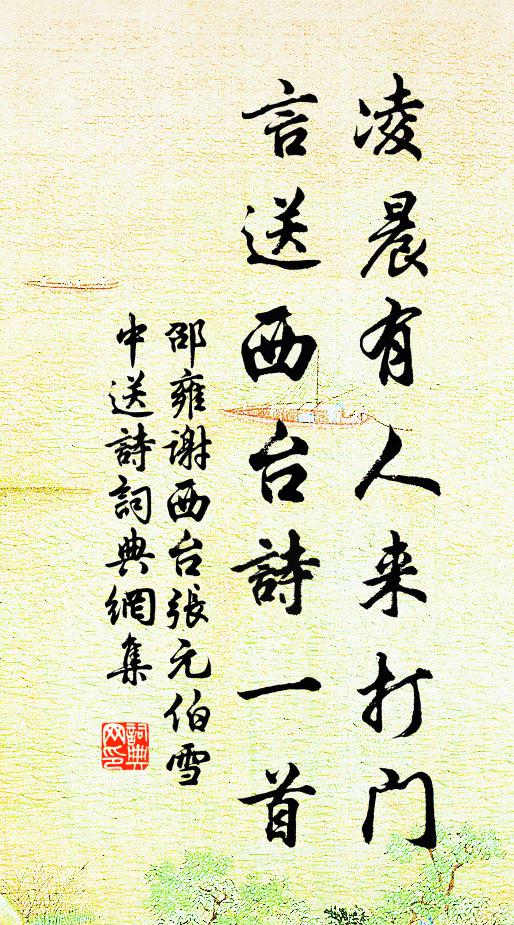 凌晨有人来打门
言送西台詩一首
邵雍谢西台張元伯雪
中送詩詞典網集
詞典
网印